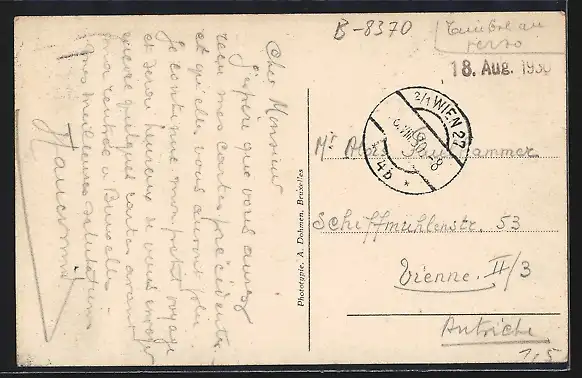 B-8370
Timbre au
verso
18. Aug. 1930
Cher Monsieur
J'espère que vous aurez
reçu mes cartes précédentes
et qu'elles vous auront plu.
Je continue mon petit voyage
et serai heureux de vous envoyer
encore quelques cartes avant
ma rentrée à Bruxelles.
Mes meilleures salutations
Phototypie. A. Dohmen, Bruxelles
2/1 WIEN 27
VIII 30-8
4b *
Mr
Schiffmühlenstr. 53
Vienne II/3
Autriche
1,5